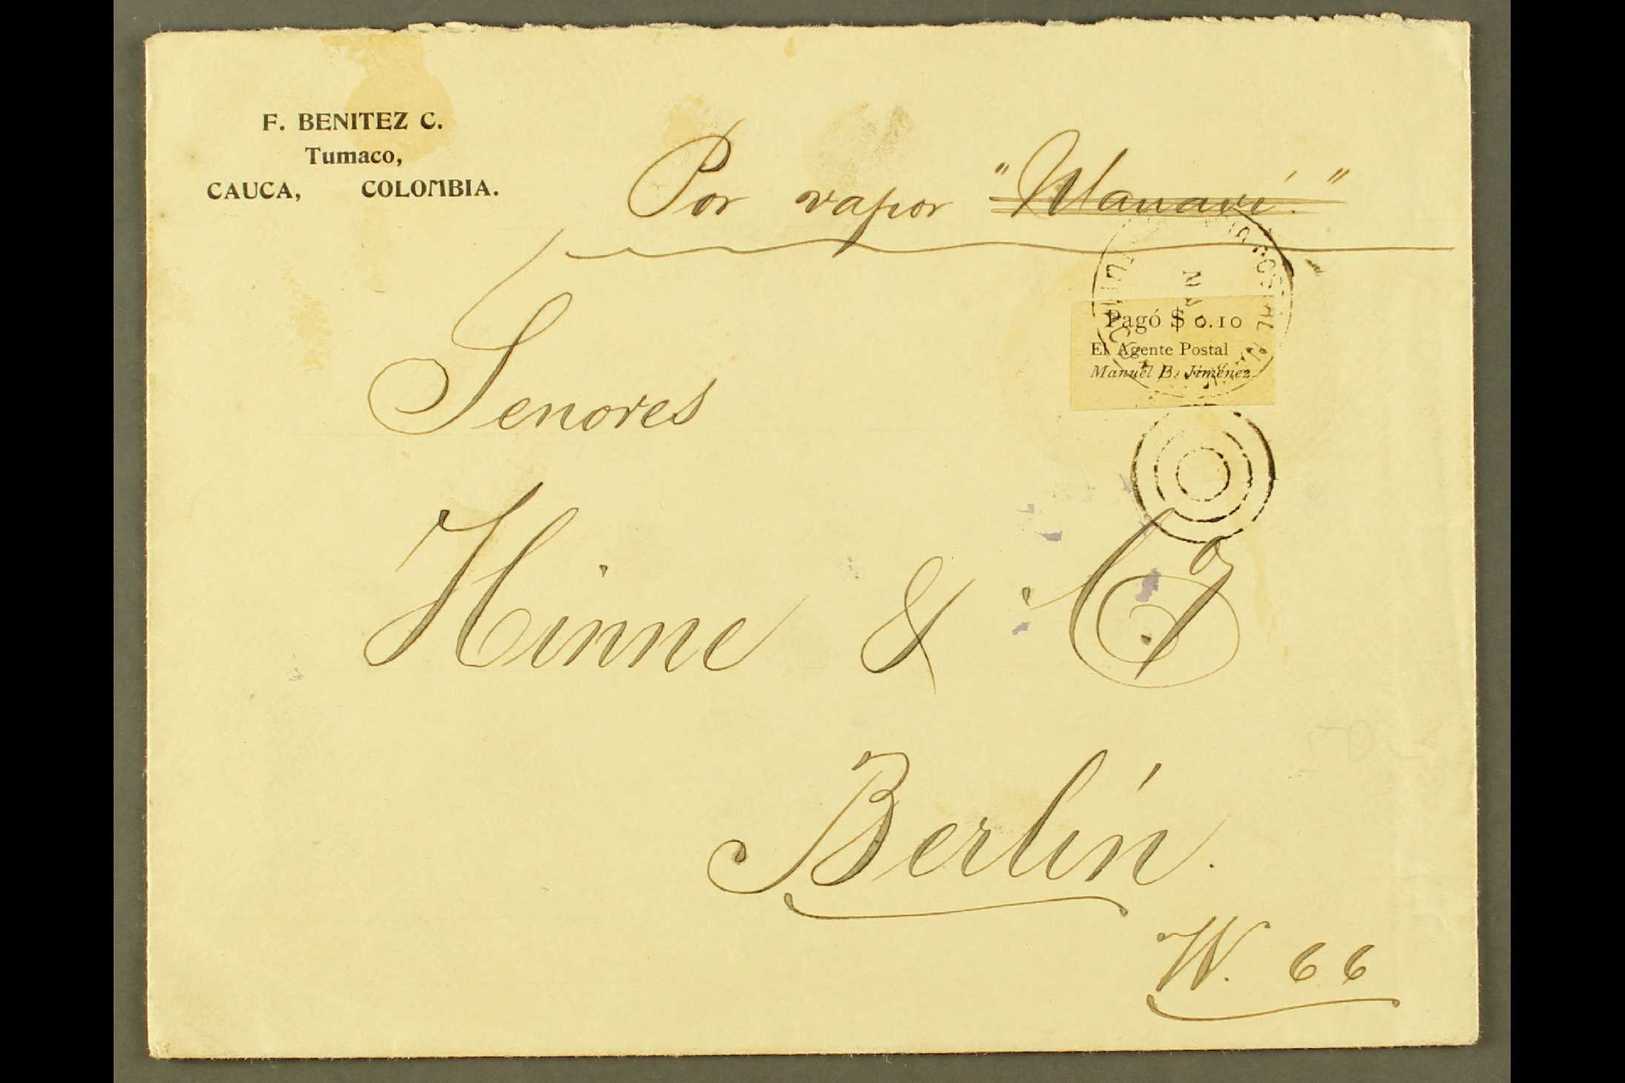 F. BENITEZ C.
Tumaco,
CAUCA, COLOMBIA.
Por vapor "Manaví."
Pagó $ 0.10
El Agente Postal
Manuel E. Jiménez
Senores
Hinne & Co
Berlín.
W. 66